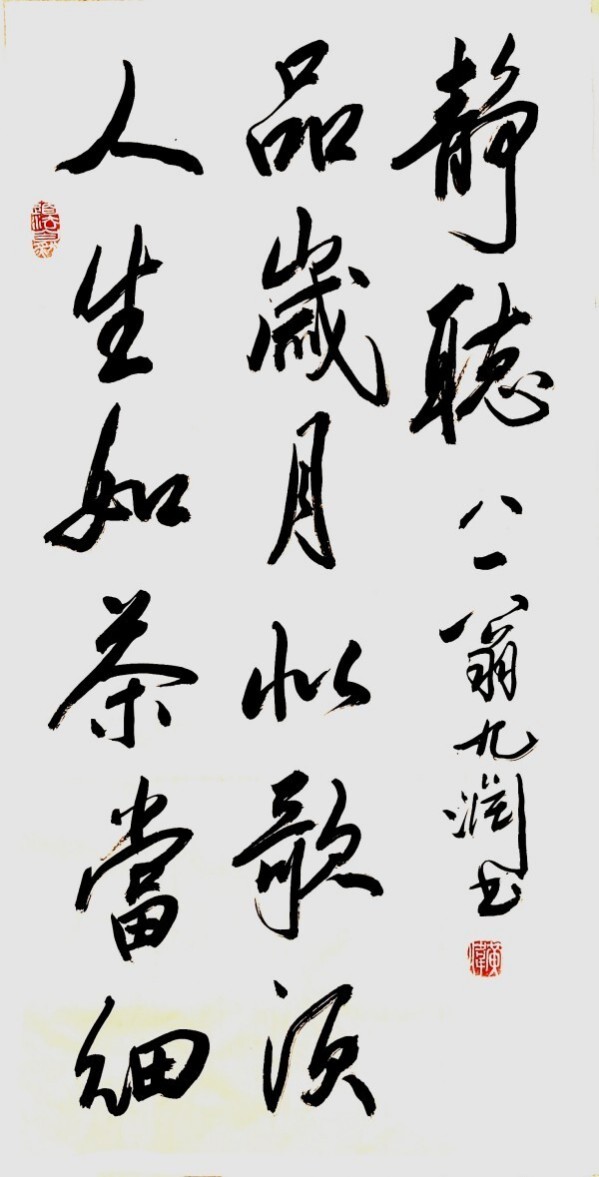 人生如茶當細
品歲月似歌須
靜聽
八一翁九潤書